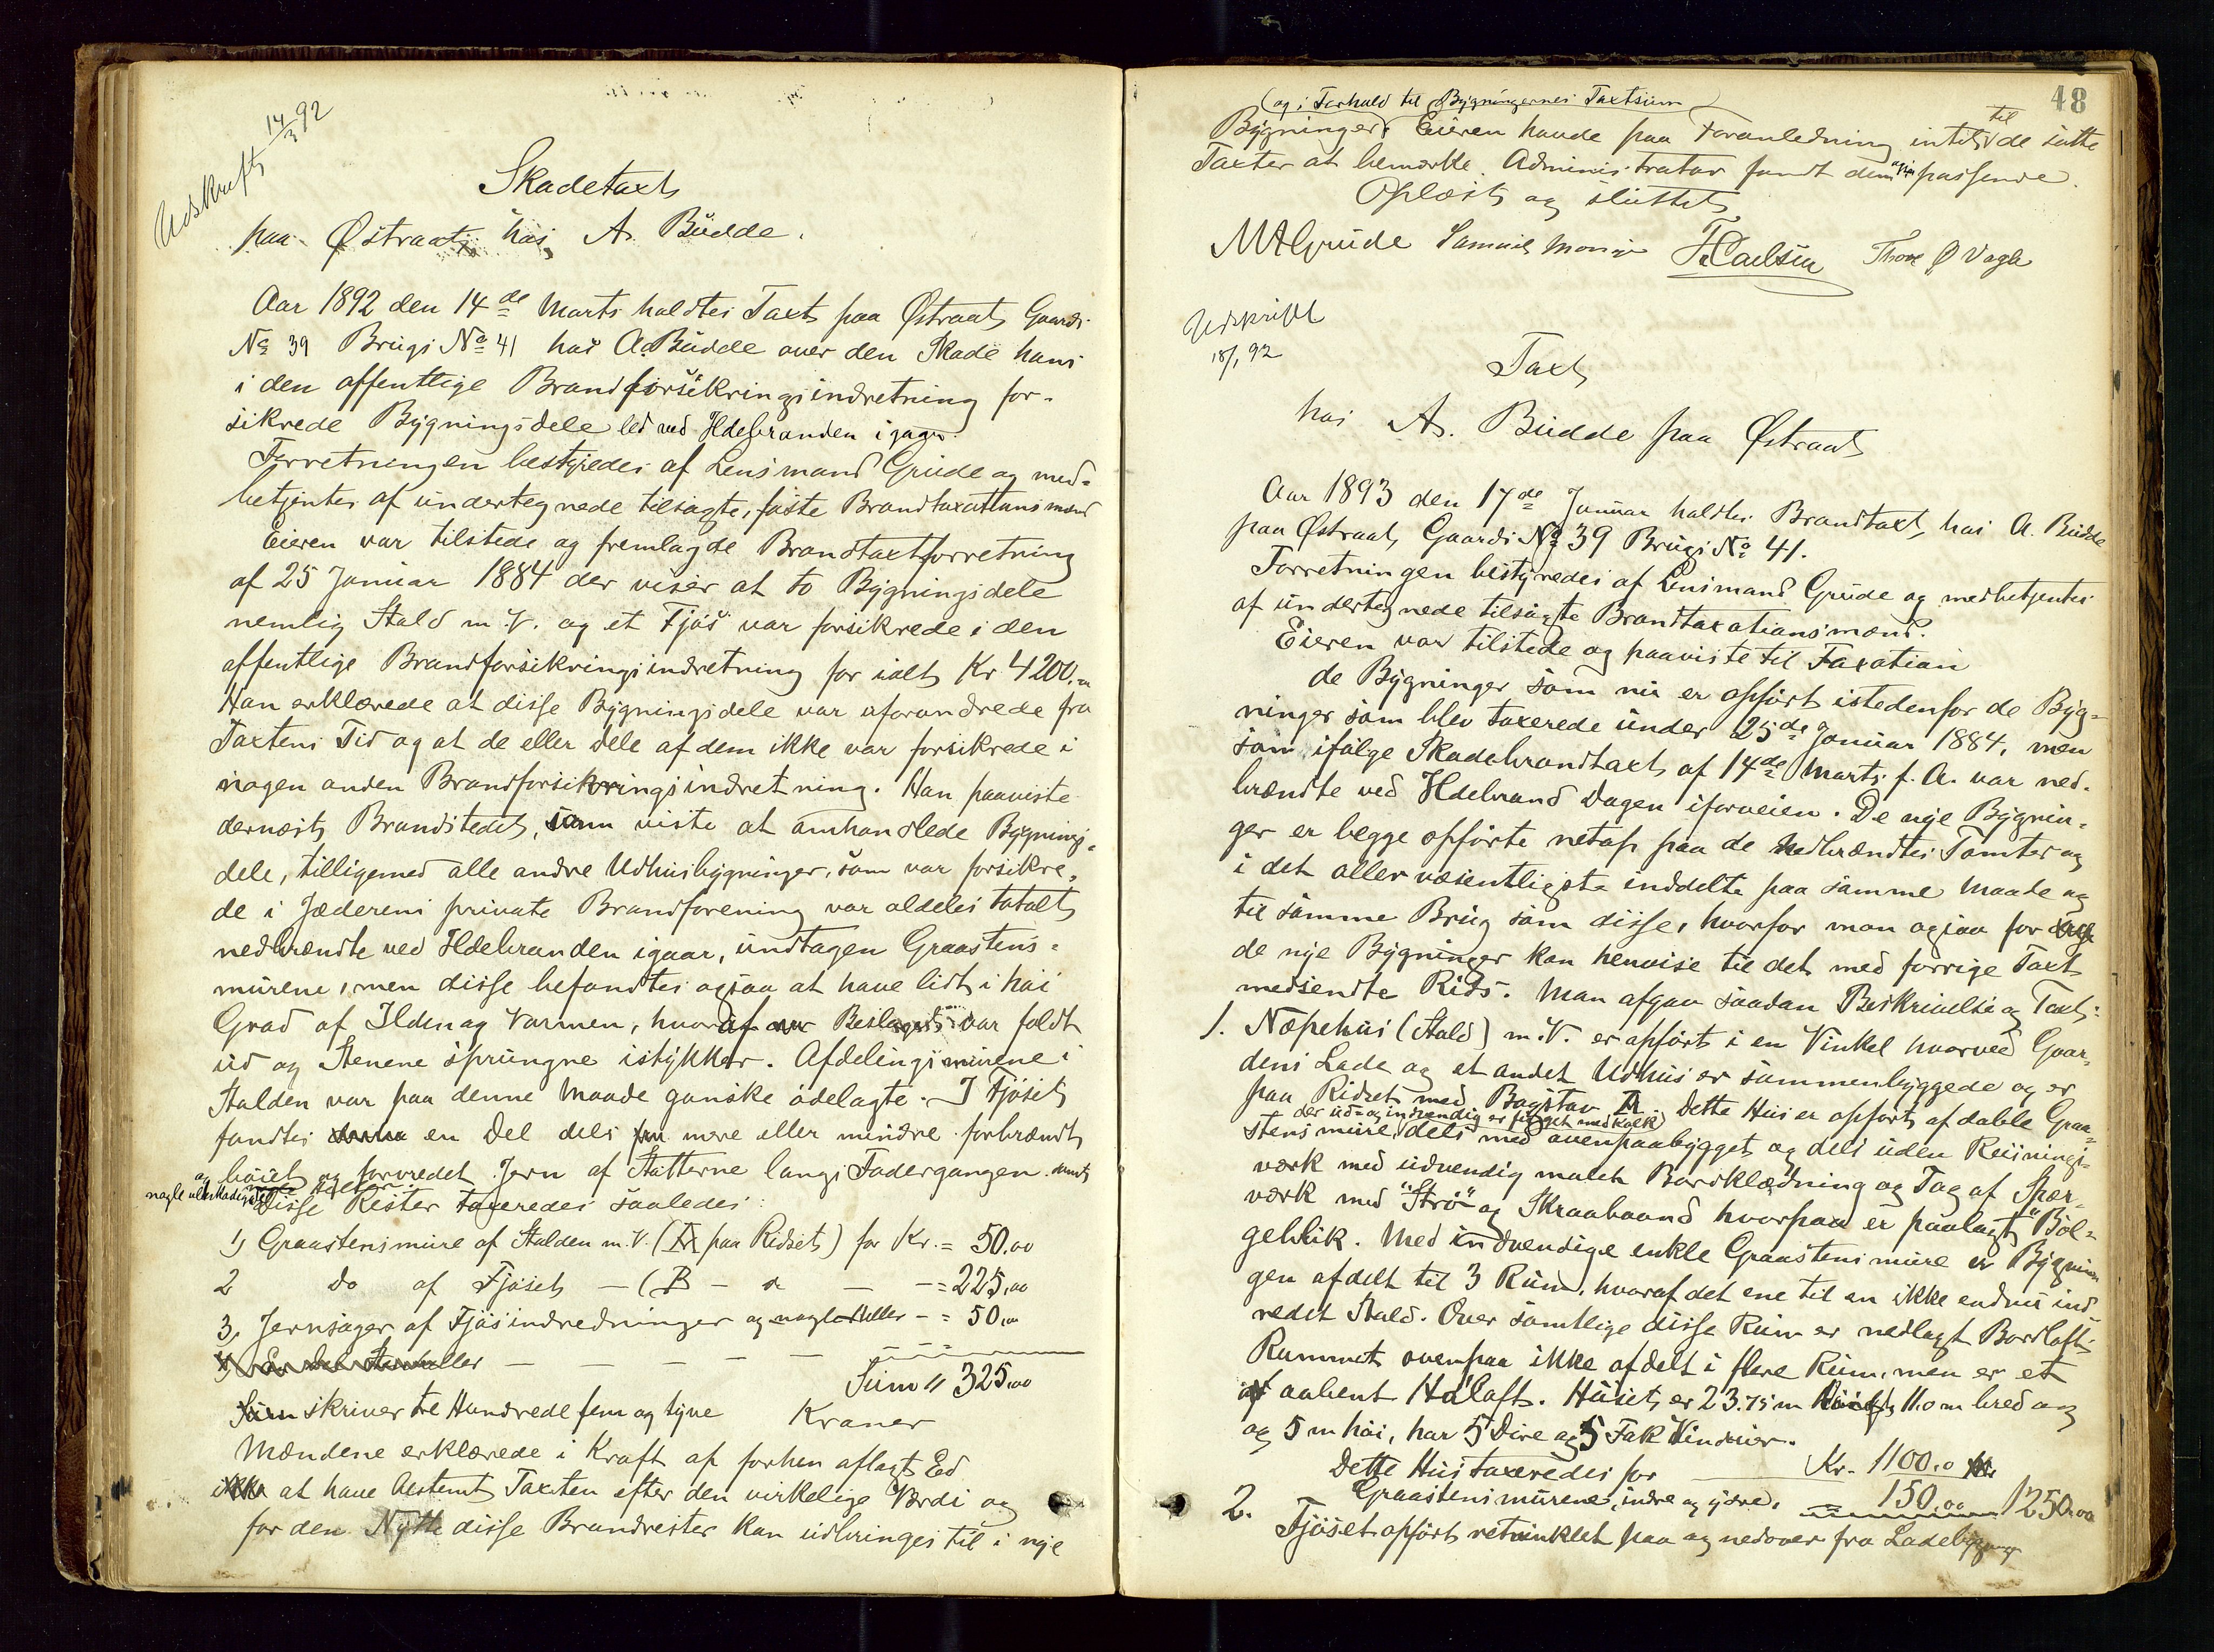 Udskrift 14/3 92
Skadetaxt
paa Østraat hos A. Budde.
Aar 1892 den 14de Marts holdtes Taxt paa Østraat Gaards
No 39 Brugs No 41 hos A. Budde over den Skade hans
i den offentlige Brandforsikringsindretning for-
sikrede Bygningsdele led ved Ildebranden igaar.
Forretningen bestyredes af Lensmand Grude og med-
betjentes af undertegnede tilsagte, faste Brandtaxationsmænd
Eieren var tilstede og fremlagde Brandtaxtforretning
af 25 Januar 1884 der viser at to Bygningsdele
nemlig Stald m.V. og et Fjøs var forsikrede i den
offentlige Brandforsikringsindretning for ialt Kr 4200.00
Han erklærede at disse Bygningsdele var uforandrede fra
Taxtens Tid og at de eller Dele af dem ikke var forsikrede i
nogen anden Brandforsikringsindretning. Han paaviste
dernæst Brandstedet, som viste at omhandlede Bygnings-
dele, tilligemed alle andre Udhusbygninger, som var forsikre-
de i Jæderens private Brandforening var aldeles totalt
nedbrændte ved Ildebranden igaar, undtagen Graastens-
murene, men disse befandtes ogsaa at have lidt i høi
Grad af Ilden og Varmen, hvoraf Beslaget var faldt
ud og Stenene sprungne istykker. Afdelingsmurene i
Stalden var paa denne Maade ganske ødelagte. I Fjøset
fandtes en Del dels mere eller mindre forbrændt
og bøiet og forvredet Jern af Støtterne langs Fodergangen samt
nogle ubeskadigede Heller.
Disse Rester taxeredes saaledes:
1) Graastensmure af Stalden m.V. (A paa Ridset) for Kr. = 50.00
2 do af Fjøset — (B - " — -= 225.00
3, Jernsager af Fjøsindredninger og nogle Heller - = 50.00
4) En Del Stenheller — — — — —
Sum " 325.00
skriver tre Hundrede fem og tyve Kroner
Mændene erklærede i Kraft af forhen aflagt Ed
at have bestemt Taxten efter den virkelige Værdi og
for den Nytte disse Brandrester kan udbringes til i nye
48
(og i Forhold til Bygningernes Taxtsum)
Bygninger. Eieren havde paa Foranledning intet til de satte
Taxter at bemærke. Administrator fandt dem ogsaa passende.
Oplæst og sluttet
M A Grude Samuel T. Carlsen Thore O Vagle
Udskrift
18/1 92
Taxt
hos A. Budde paa Østraat
Aar 1893 den 17de Januar holdtes Brandtaxt hos A. Budde
paa Østraat, Gaards No 39 Brugs No 41.
Forretningen bestyredes af Lensmand Grude og medbetjentes
af undertegnede tilsagte Brandtaxationsmænd.
Eieren var tilstede og paaviste til Taxation
de Bygninger som nu er opført istedenfor de Byg-
ninger som blev taxerede under 25de Januar 1884, men
som ifølge Skadebrandtaxt af 14de Marts f. A. var ned-
brændte ved Ildebrand Dagen iforveien. De nye Bygnin-
ger er begge opførte netop paa de nedbrændtes Tomter og
i det allervæsentligste inddelte paa samme Maade og
til samme Brug som disse, hvorfor man ogsaa for
de nye Bygninger kan henvise til det med forrige Taxt
medsendte Rids. Man afgav saadan Beskrivelse og Taxt:
1. Næpehus (Stald) m.V. er opført i en Vinkel hvorved Gaar-
dens Lade og et andet Udhus er sammenbyggede og er
paa Ridset med Bogstav A. Dette Hus er opført af doble Graa-
der ud- og indvendig er fuget med Kalk
stensmure, dels med ovenpaabygget og dels uden Reisnings-
værk med udvendig malet Bordklædning og Tag af Spær-
værk med "Strø" og Skraabaand hvorpaa er paalagt "Bøl-
geblik. Med indvendige enkle Graastensmure er Bygnin
gen afdelt til 3 Rum, hvoraf det ene til en ikke endnu ind
redet Stald. Over samtlige disse Rum er nedlagt Bordloft.
Rummet ovenpaa ikke afdelt i flere Rum, men er et
aabent Høloft. Huset er 23.75 m langt, 11.0 m bred og
og 5 m høi, har 5 Døre og 5 Fak Vinduer.
Dette Hus taxeredes for — Kr. 1100.0
Graastensmurene, indre og ydre, = 150.00 1250.00
2. Fjøset opført retvinklet paa og nedover fra Ladebygning